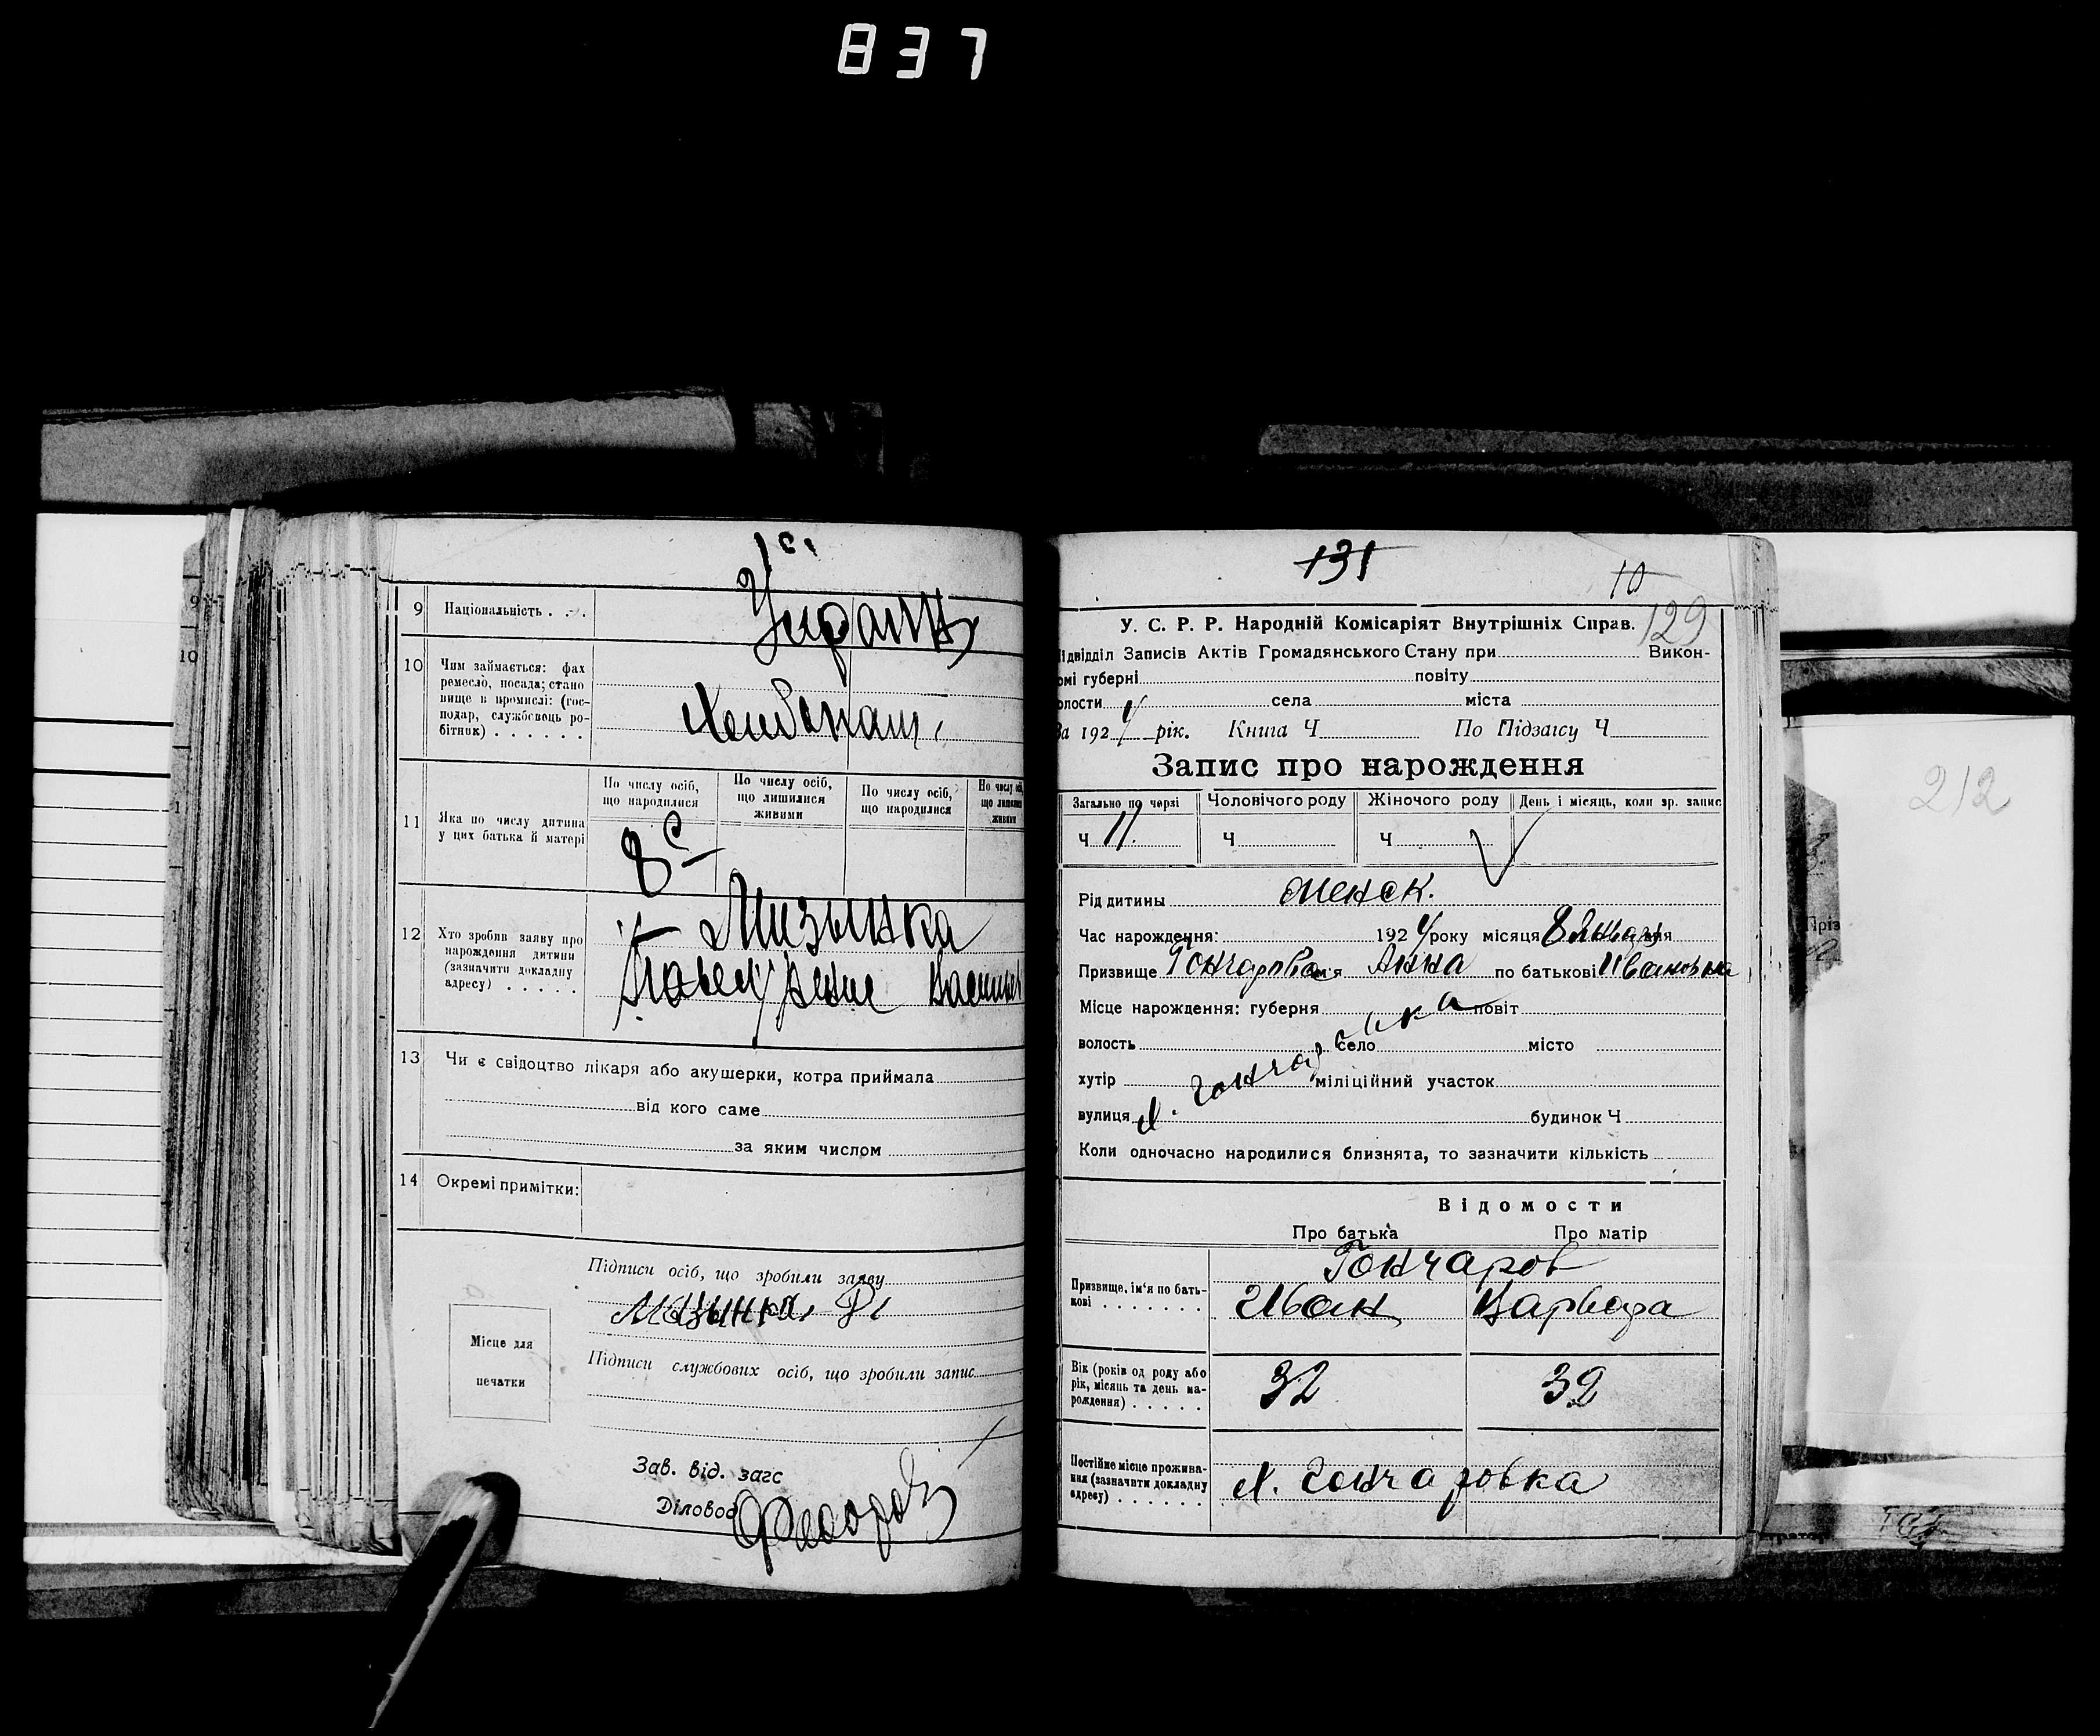 837
9 Національність . . .
Украин
10 Чим займається: фах
ремесло, посада; стано
вище в промислі: (гос-
подар, службовець ро-
бітник) . . . . . .
Хлебопаш.
11 Яка по числу дитина
у цих батька й матері
По числу осіб,
що народилися
По числу осіб,
що лишилися
живими
По числу осіб,
що народилися
По числу осіб,
що лишилися
живими
8
12 Хто зробив заяву про
нарождення дитини
(зазначити докладну
адресу) . . . . .
Мизынка
13 Чи є свідоцтво лікаря або акушерки, котра приймала
від кого саме
за яким числом
14 Окремі примітки:
Підписи осіб, що зробили заяву
Мазынка
Місце для
печатки
Підписи службових осіб, що зробили запис
Зав. від. загс
Діловод
131
10
129
У. С. Р. Р. Народній Комісаріят Внутрішніх Справ.
ідвідділ Записів Актів Громадянського Стану при Викон-
омі губерні повіту
олости села міста
За 1924 рік. Книга Ч По Підзагсу Ч
Запис про нарождення
Загально по черзі Чоловічого роду Жіночого роду День і місяць, коли зр. запис
Ч 11. Ч Ч
Рід дитины женск.
Час нарождення: 1924 року місяця 8 Января дня
Призвище Гончарова ім'я Анна по батькові Ивановна
Місце нарождення: губерня повіт
волость село місто
хутір міліційний участок
х. Гончаровка
вулиця будинок Ч
Коли одночасно народилися близнята, то зазначити кількість
Відомости
Про батька Про матір
Призвище, ім'я по бать-
кові . . . . . . .
Гончаров
Иван Варвара
Вік (років од роду або
рік, місяць та день на-
рождення) . . . . .
32 32
Постійне місце прожива-
ння (зазначити докладну
адресу) . . . . . . .
х. Гончаровка
212